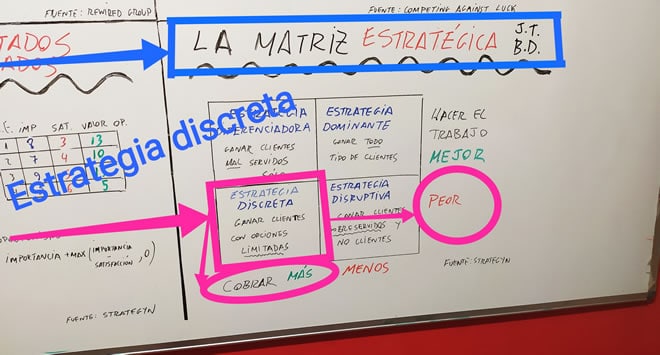 FUENTE: REWIRED GROUP
FUENTE: COMPETING AGAINST LUCK
LA MATRIZ ESTRATÉGICA J.T.
B.D.
TADOS
ADOS
IMP SAT. VALOR OP.
1 8 3 13
2 7 4 10
3 9
5
IMPORTANCIA + MAX (IMPORTANCIA
SATISFACCIÓN, 0)
FUENTE: STRATEGYN
Estrategia discreta
ESTRATEGIA
DIFERENCIADORA
GANAR CLIENTES
MAL SERVIDOS
SÓLO
ESTRATEGIA
DOMINANTE
GANAR TODO
TIPO DE CLIENTES
HACER EL
TRABAJO
MEJOR
ESTRATEGIA
DISCRETA
GANAR CLIENTES
CON OPCIONES
LIMITADAS
ESTRATEGIA
DISRUPTIVA
GANAR CLIENTES
SOBRESERVIDOS Y
NO CLIENTES
PEOR
COBRAR MÁS
MENOS
FUENTE: STRATEGYN